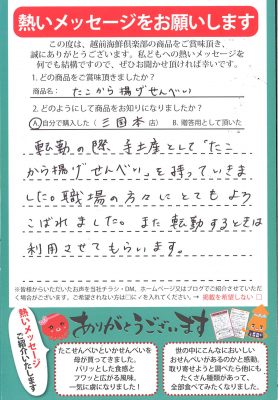 熱いメッセージをお願いします
この度は、越前海鮮倶楽部の商品をご賞味頂き、
誠にありがとうございます。私どもへの熱いメッセージを
何でも結構ですので、ぜひお聞かせ頂ければ幸いです。
1. どの商品をご賞味頂きましたか?
商品名: たこから揚げせんべい
2. どのようにして商品をお知りになりましたか?
A.自分で購入した(三国本店) B. 贈答用として頂いた
転勤の際、手土産として「たこ
から揚げせんべい」を持っていきま
した。職場の方々にとてもよろ
こばれました。また転勤するときは
利用させてもらいます。
※皆様からいただいたお声を当社チラシ・DM、ホームページ又はブログでご紹介させていただ
く場合がございます。ご希望されない方は□に✓を入れてください。→ 掲載を希望しない □
熱いメッセージ
ご紹介いたします
ありがとうございます
たこせんべいといかせんべいを
母が買ってきました。
パリッとした食感と
フワッと広がる風味。
一気に虜になりました!
世の中にこんなにおいしい
おせんべいがあるのかと感動。
取り寄せようと調べたら他にも
たくさん種類があって、
全部食べてみたくなりました。